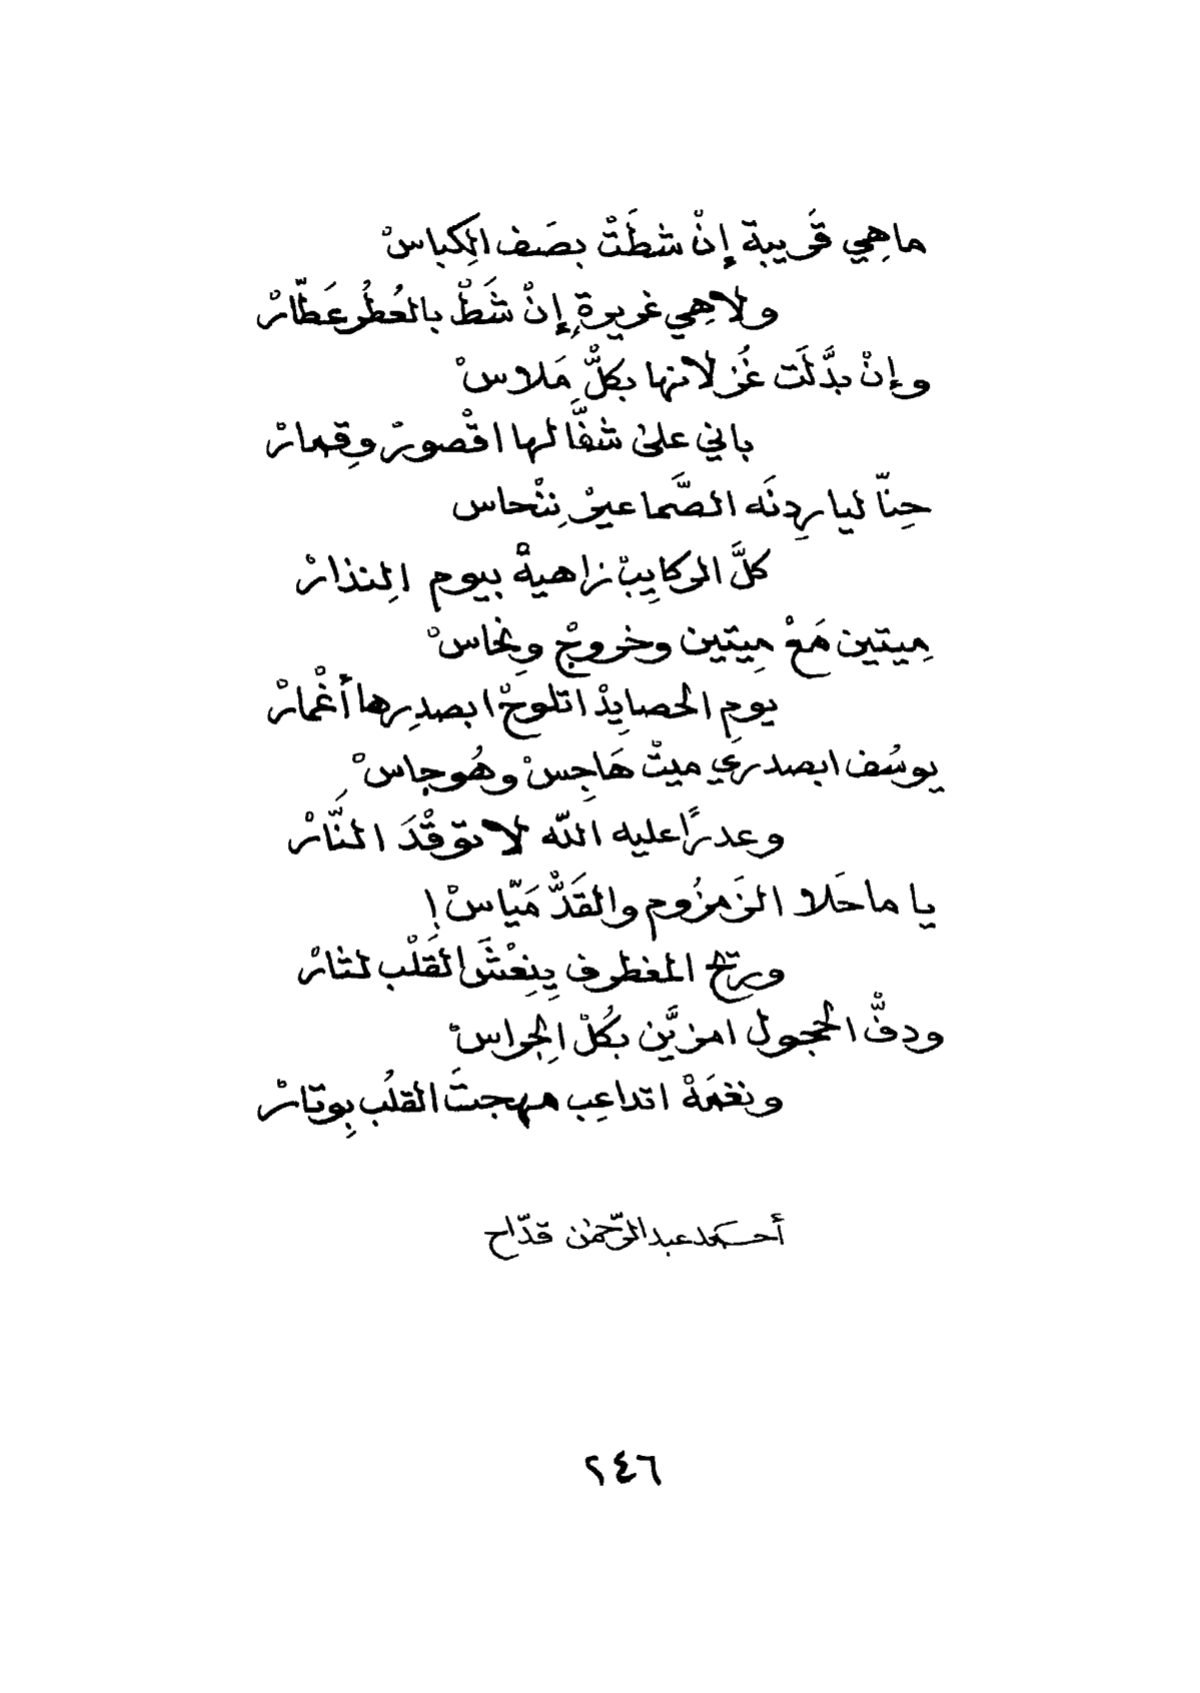 ماهِي قَريبة إِنْ شطَتْ بصَف الِكباسْ
ولاهِي غريرة إِنْ شَطْ بالعُطُر عَطّارْ
وإنْ بدَّلَت غُزلانها بكلّ مَلاسْ
باني علىٰ شفَّالها اقْصورْ وقِمارْ
حِنّا ليا رِدنَه الصَّماعيْ نِنْحاس
كلَّ الركايِبْ زاهيةْ بيوم الِنذارْ
مِيتين مَعْ مِيتين وخروجْ ونِحاسْ
يوم الحصايِدْ اتلوحْ ابصدِرها أغْمارْ
يوسُف ابصدرَي ميتْ هَاجِسْ وهُوجاسْ
وعدرًا عليه الله لا توقْدَ النَّارْ
يا ما حَلا الزَمزُوم والقَدّْ مَيّاسْ!
وريح المغطرف يِنِعْشَ القَلْب لثارْ
ودفّْ الحجول امزيَّن بكُلْ الِجراسْ
ونغمَةْ اتداعِب مهجتَ القلُب بِوتارْ
أحمد عبد الرّحمٰن قدّاح
٢٤٦